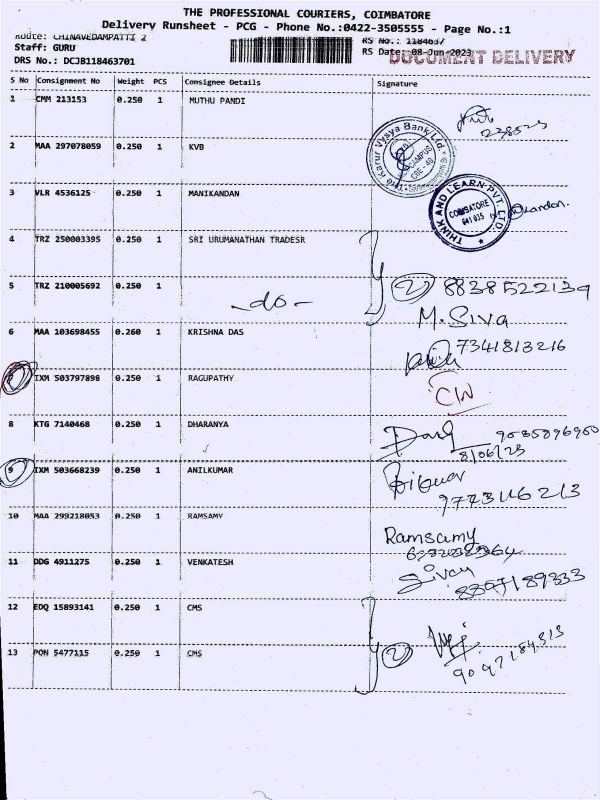 THE PROFESSIONAL COURIERS, COIMBATORE
Delivery Runsheet - PCG - Phone No.:0422-3505555 - Page No.:1
Route: CHINAVEDAMPATTI 2
RS No.: 1184637
Staff: GURU
RS Date: 08-Jun-2023
DOCUMENT DELIVERY
DRS No.: DCJB118463701
S No Consignment No Weight PCS Consignee Details Signature
1 CMM 213153 0.250 1 MUTHU PANDI
2 MAA 297078059 0.250 1 KVB
Karur Vysya Bank Ltd.
3 VLR 4536125 0.250 1 MANIKANDAN
THINK AND LEARN PVT. LTD.
COIMBATORE
641 035
4 TRZ 250003395 0.250 1 SRI URUMANATHAN TRADESR
5 TRZ 210005692 0.250 1 -do- 2 8838522139
M. Siva
6 MAA 103698455 0.260 1 KRISHNA DAS 7341813216
IXM 503797898 0.250 1 RAGUPATHY
8 KTG 7140468 0.250 1 DHARANYA
8/06/23
9 IXM 503668239 0.250 1 ANILKUMAR
10 MAA 299218053 0.250 1 RAMSAMY Ramsamy
11 DDG 4911275 0.250 1 VENKATESH
8867189333
12 EDQ 15893141 0.250 1 CMS
13 PON 5477115 0.250 1 CMS 2